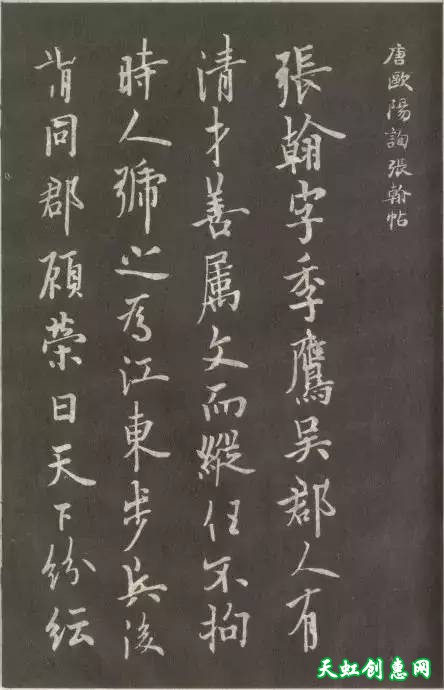 唐歐陽詢張翰帖
張翰字季鷹吳郡人有
清才善属文而縱任不拘
時人號之為江東步兵後
謂同郡顧榮曰天下紛紜
天虹创惠网